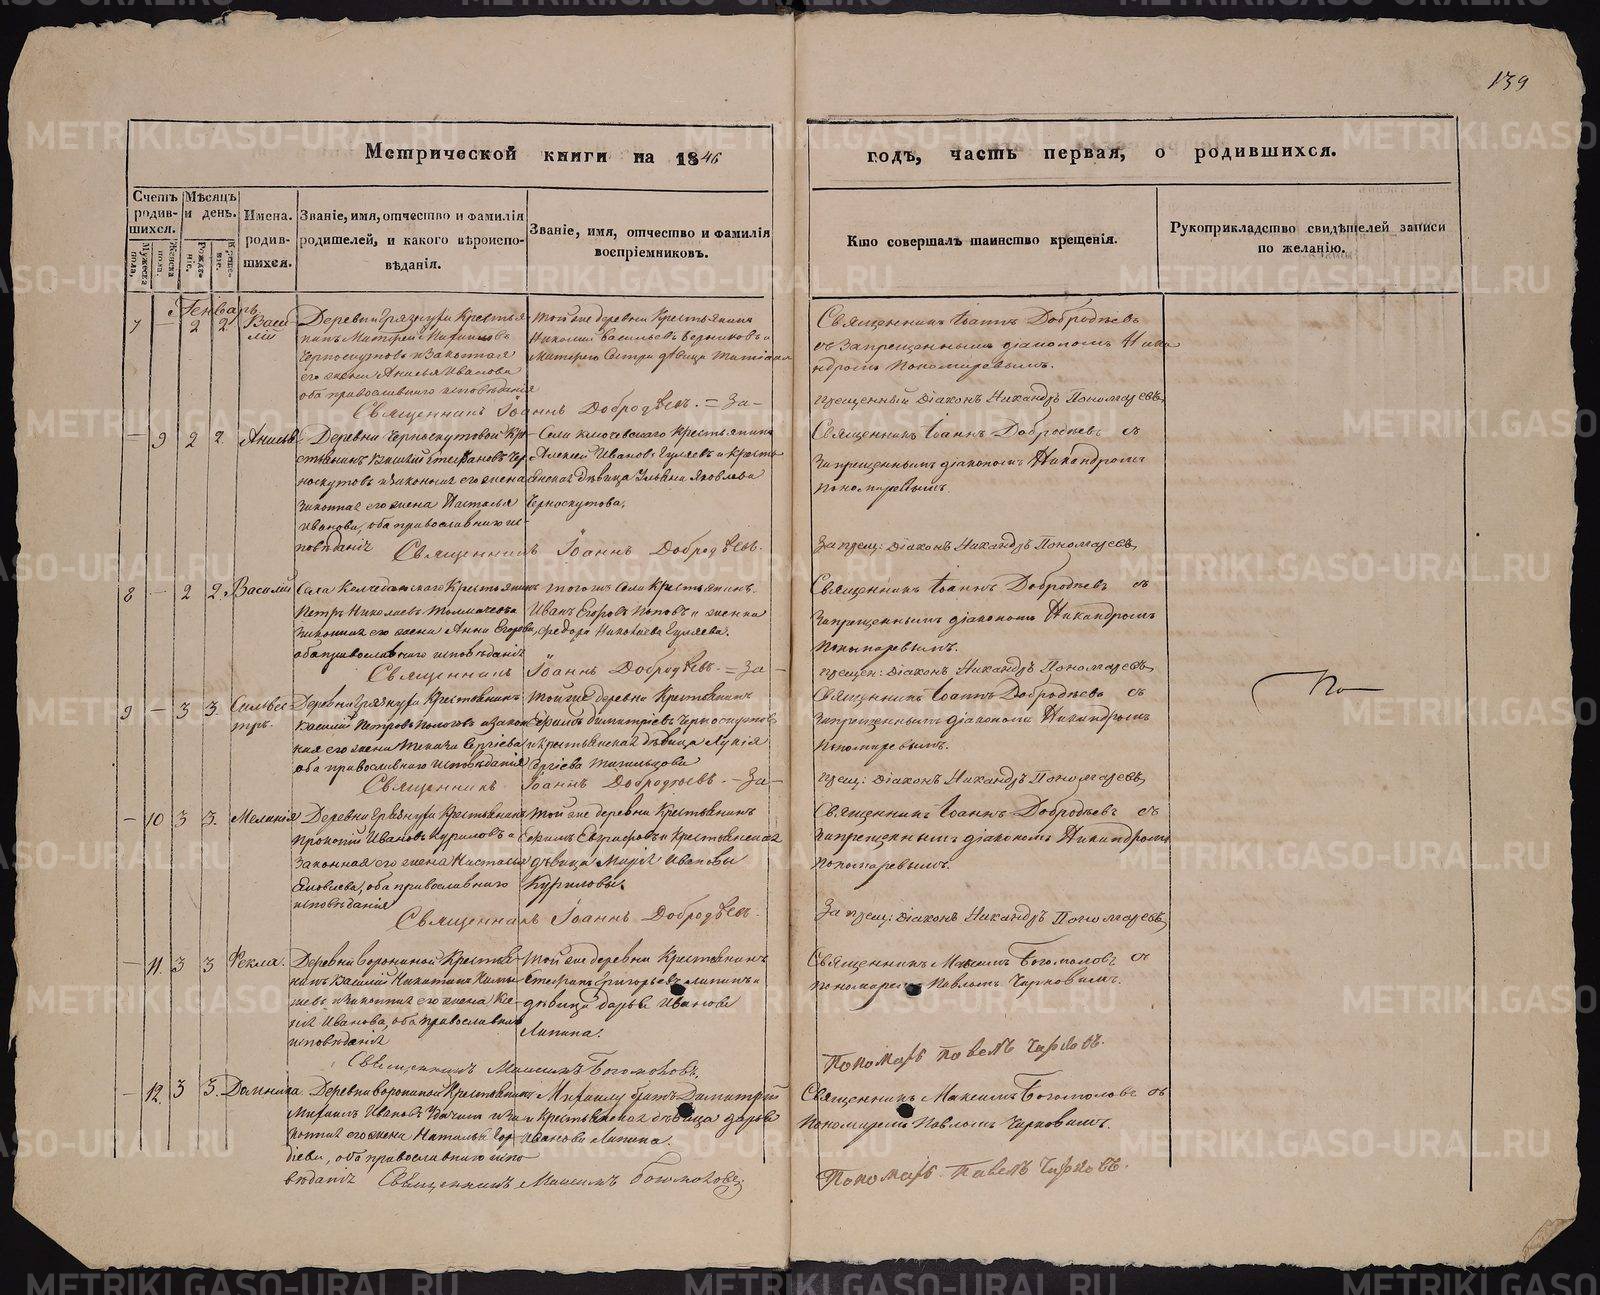 139
Метрической книги на 1846
годъ, часть первая, о родившихся.
Счетъ родив-шихся.
Мужеска пола,
Женска пола.
Мѣсяцъ и день.
Рожде-ніе.
Креще-ніе.
Имена. родив-шихся.
Званіе, имя, отчество и фамилія
родителей, и какого вѣроиспо-
вѣданія.
Званіе, имя, отчество и фамилія
воспріемниковъ.
Кто совершалъ таинство крещенія.
Рукоприкладство свидѣтелей записи
по желанію.
Генварь
7 — 2 2 Васи
лій
Деревни Грязнухи Крестья
его жена Анисья Иванова
оба православнаго исповѣданія
Той же деревни Крестьянинъ
Николай Васильевъ
Священникъ Іоаннъ Добродѣевъ
съ Запрещеннымъ діакономъ Ника
ндромъ Пономаревымъ.
Священникъ Іоаннъ Добродѣевъ. = За-
прещенный Діаконъ Никандръ Пономаревъ
— 9 2 2.
Деревни Черноскутовой Кре
стьянинъ Стефановъ Чер
носкутовъ и законная его жена
законная его жена Настасья
Иванова, оба православнаго ис-
повѣданія
Села Ключевскаго Крестьянинъ
Алексей Ивановъ Гуляевъ и Кресть
янская дѣвица Ульяна Яковлева
Черноскутова,
Священникъ Іоаннъ Добродѣевъ съ
Запрещеннымъ діакономъ Никандромъ
Пономаревымъ.
Священникъ Іоаннъ Добродѣевъ.
Запрещ: Діаконъ Никандръ Пономаревъ
8 — 2 2. Василій
Села Колчеданскаго Крестьянинъ
Петръ Николаевъ Толмачевъ
законная его жена Анна Егорова,
оба православнаго исповѣданія
того же Села Крестьянинъ
Иванъ Егоровъ Поповъ и женка
Федора Николаева Гуляева.
Священникъ Іоаннъ Добродѣевъ съ
Запрещеннымъ діакономъ Никандромъ
Пономаревымъ.
Священникъ Іоаннъ Добродѣевъ. = За-
прещен: Діаконъ Никандръ Пономаревъ
9 — 3 3. Сильвес
тръ.
Деревни Грязнухи Крестьянинъ
Василій Петровъ и закон
ная его жена Сергіева
оба православнаго исповѣданія
Той же деревни Крестьянинъ
Димитріевъ Черноскутовъ
и крестьянская дѣвица Лукія
Сергіева
Священникъ Іоаннъ Добродѣевъ съ
Запрещеннымъ діакономъ Никандромъ
Пономаревымъ.
Священникъ Іоаннъ Добродѣевъ. — За-
прещ: Діаконъ Никандръ Пономаревъ
— 10 3 3. Меланія
Деревни Грязнухи Крестьянинъ
Прокопій Ивановъ Куриловъ и
Законная его жена Настасья
Яковлева, оба православнаго
исповѣданія
Той же деревни Крестьянинъ
Ефимъ Евграфовъ и Крестьянская
дѣвица Марія Иванова
Куриловы.
Священникъ Іоаннъ Добродѣевъ съ
Запрещеннымъ діакономъ Никандромъ
Пономаревымъ.
Священникъ Іоаннъ Добродѣевъ.
Запрещ: Діаконъ Никандръ Пономаревъ
— 11. 3 3 Фекла.
Деревни Ворониной Крестья
нинъ Василій Никитинъ
и законная его жена
Иванова, оба православнаго
исповѣданія
Той же деревни Крестьянинъ
Стефанъ Григорьевъ Липинъ и
дѣвица Дарья Иванова
Липина.
Священникъ Максимъ Богомоловъ съ
пономаремъ Павломъ Чирковымъ.
Священникъ Максимъ Богомоловъ.
Пономарь Павелъ Чирковъ.
— 12. 3 3. Домника.
Деревни Ворониной Крестьянинъ
Михаилъ Ивановъ и за
конная его жена Наталья
оба православнаго испо
вѣданія
Михаилу братъ Димитрій
и Крестьянская дѣвица Дарья
Иванова Липина.
Священникъ Максимъ Богомоловъ съ
Пономаремъ Павломъ Чирковымъ.
Священникъ Максимъ Богомоловъ.
Пономарь Павелъ Чирковъ.
По
METRIKI.GASO-URAL.RU